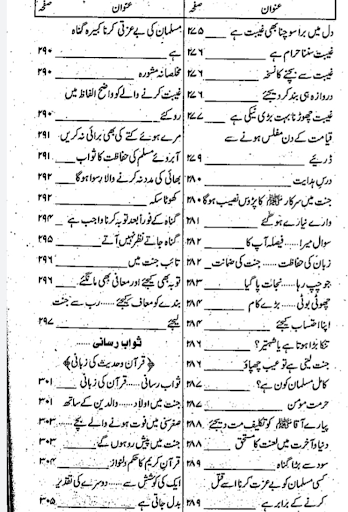 عنوان صفحہ
دل میں برا سوچنا بھی غیبت ہے ۲۷۵
غیبت سننا حرام ہے ۲۷۶
غیبت سے بچنے کا نسخہ ۲۷۶
دروازہ ہی بند کر دیجئے ۲۷۶
غیبت چھوڑنا بہت بڑی نیکی ہے ۲۷۷
قیامت کے دن مفلس ہونے سے
ڈریئے ۲۷۹
درس ہدایت ۲۸۰
جنت میں سرکار ﷺ کا پڑوس نصیب ہو گا ۲۸۰
وارے نیارے ہو گئے ۲۸۱
سوال میرا ...... فیصلہ آپ کا ۲۸۲
زبان کی حفاظت ...... جنت کی ضمانت ۲۸۲
جو چپ رہا ...... نجات پا گیا ۲۸۳
چھوٹی بوٹی ...... بڑے کام ۲۸۴
اپنا احتساب کیجئے ۲۸۴
تنکا بڑا ہوتا ہے یا شہتیر؟ ۲۸۶
جنت لینی ہے تو عیب چھپاؤ ۲۸۶
کامل مسلمان کون ہے؟ ۲۸۷
حرمت مومن ۲۸۷
پیارے آقا ﷺ کو تکلیف مت دیجئے ۲۸۸
دنیا و آخرت میں لعنت کا مستحق ۲۸۸
سود سے بڑا گناہ ۲۸۹
کسی مسلمان کو بے عزت کرنا اسے قتل
کرنے کے برابر ہے ۲۸۹
عنوان صفحہ
مسلمان کی بے عزتی کرنا کبیرہ گناہ
ہے ۲۹۰
مخلصانہ مشورہ ۲۹۰
غیبت کرنے والے کو واضح الفاظ میں
روکئے ۲۹۰
مرے ہوئے کتے کی بھی برائی نہ کریں ۲۹۱
آبروئے مسلم کی حفاظت کا ثواب ۲۹۱
بھائی کی مدد نہ کرنے والا رسوا ہو گا ۲۹۲
کھوٹا سکہ ۲۹۲
گناہ کے فوراً بعد توبہ کرنا واجب ہے ۲۹۴
گناہ جاتے نظر نہیں آتے ۲۹۵
تائب جنت میں ۲۹۶
توبہ بھی کیجئے اور معافی بھی مانگئے ۲۹۶
بندے کو معاف کیجئے ...... رب سے جنت
لیجئے ۲۹۷
ثواب رسانی ......
﴿قرآن و حدیث کی زبانی﴾
ثواب رسانی ...... قرآن کی زبانی ۳۰۱
جنت میں اولاد ...... والدین کے ساتھ ۳۰۱
صغر سنی میں فوت ہونے والے بچے ۳۰۳
جنت میں پیش رو ہوں گے ۳۰۳
قرآن کریم کا حکم دلنواز ۳۰۴
ایک کی کوشش سے ...... دوسرے کی تقدیر
بدل جاتی ہے ۳۰۵